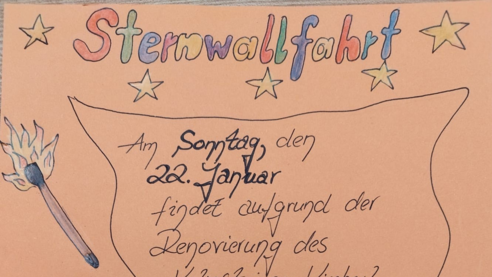 Sternwallfahrt
Am Sonntag, den
22. Januar
findet aufgrund der
Renovierung des